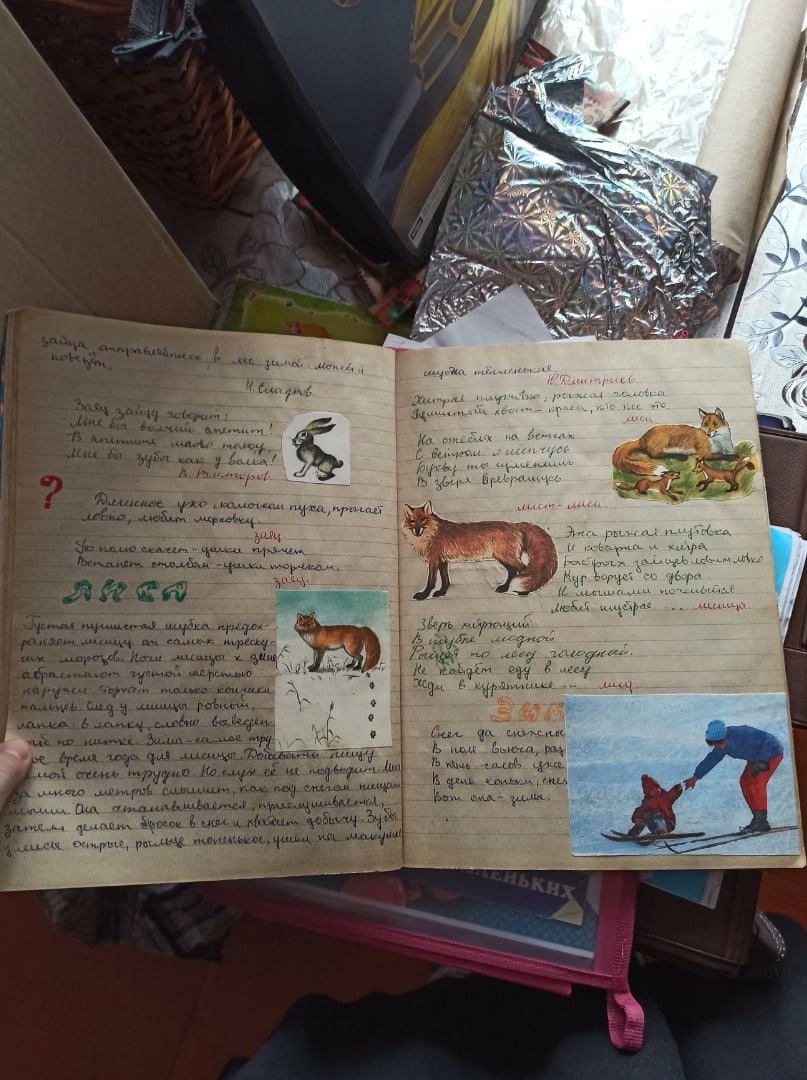 зайца отправляйтесь в лес зимой, может
повезёт.
Н. Сладков.
Заец зайцу говорит:
- Мне бы волчий апетит!
В апетите мало толку,
Мне бы зубы как у волка!
В. Викторов.
?
Длинное ухо, комочком пуха, прыгает
ловко, любит морковку.
заец.
По полю скачет - ушки прячет
Встанет столбом - ушки торчком.
заец.
ЛИСА
Густая пушистая шубка предох-
раняет лисицу от самых треску-
чих морозов. Ноги лисицы к зиме
обрастают густой шерстью
наружи торчат только кончики
пальцев. След у лисицы ровный,
лапка в лапку, словно выведен
по нитке. Зима - самое тру
время года для лисицы. Добывать пищу
зимой очень трудно. Но слух её не подводит. Лиса
за много метров слышит, как под снегом пищат
мыши. Она останавливается, прислушивается,
затем делает бросок в снег и хватает добычу. Зубы
у лисы острые, рыльце тоненькое, ушки на макушке
шубка тёпленькая.
Ю. Дмитриев
Хитрая плутовка, рыжая головка
Пушистый хвост - краса, кто же это
лиса
На стеблях на ветках
С ветром я шепчусь
Букву ты изменишь
В зверя превращусь
лист - лиса.
Эта рыжая плутовка
И коварна и хитра
Быстрых зайцев ловит ловко
Кур ворует со двора.
И мышами поживиться
Любит шустрая ... лисица
Зверь
В шубке модной
Рыщет по лесу голодной.
Не найдёт еду в лесу
Жди в курятнике ... лису
ЗИМ
Снег да снежные
В поле вьюга, раз
В пять часов уже
В день коньки,
Вот она - зима.
ЛЕНЬКИХ